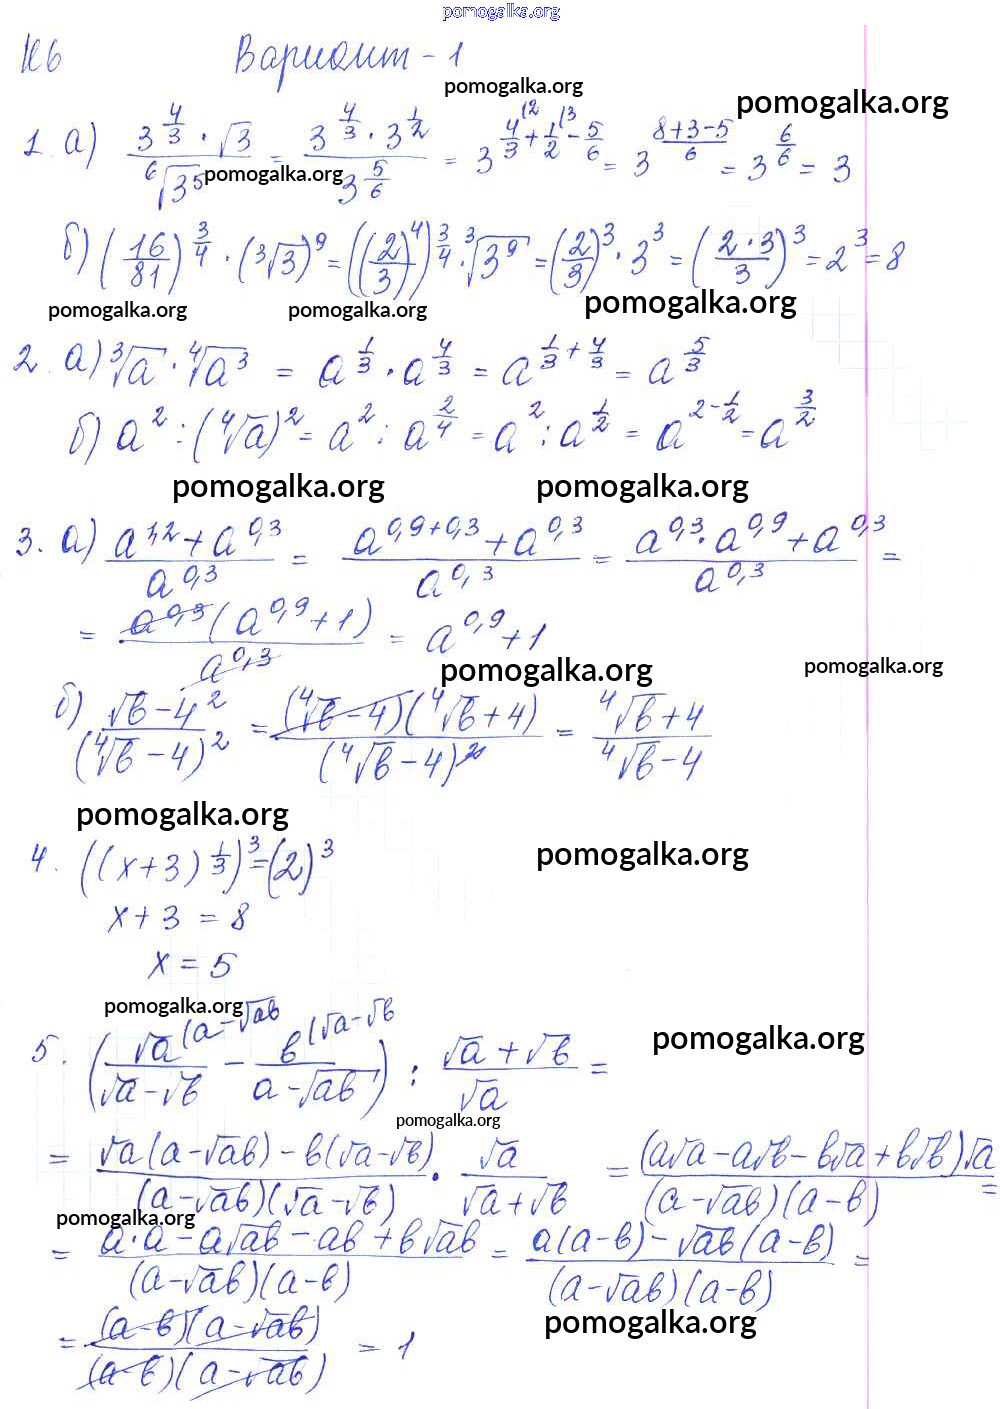 pomogalka.org
К6 Вариант - 1
pomogalka.org
pomogalka.org
1. а) (3^(4/3) · √3)/(⁶√3⁵) = (3^(4/3) · 3^(1/2))/(3^(5/6)) = 3^(4/3 (2 + 1/2 (3 - 5/6) = 3^((8+3-5)/6) = 3^(6/6) = 3
pomogalka.org
б) (16/81)^(3/4) · (³√3)⁹ = ((2/3)⁴)^(3/4) · ³√3⁹ = (2/3)³ · 3³ = ((2·3)/3)³ = 2³ = 8
pomogalka.org pomogalka.org pomogalka.org
2. а) ³√a · ⁴√a³ = a^(1/3) · a^(4/3) = a^(1/3 + 4/3) = a^(5/3)
б) a² : (⁴√a)² = a² : a^(2/4) = a² : a^(1/2) = a^(2-1/2) = a^(3/2)
pomogalka.org pomogalka.org
3. а) (a^1,2 + a^0,3)/(a^0,3) = (a^(0,9+0,3) + a^0,3)/(a^0,3) = (a^0,3 · a^0,9 + a^0,3)/(a^0,3) =
= (a^0,3 (a^0,9 + 1))/(a^0,3) = a^0,9 + 1
pomogalka.org pomogalka.org
б) (√в - 4²)/((⁴√в - 4)²) = ((⁴√в - 4)(⁴√в + 4))/((⁴√в - 4)²) = (⁴√в + 4)/(⁴√в - 4)
pomogalka.org
4. ((x+3)^(1/3))³ = (2)³
pomogalka.org
x + 3 = 8
x = 5
pomogalka.org
5. (√a (a-√aв / (√a - √в) - в (√a-√в / (a - √aв)) : (√a + √в)/√a =
pomogalka.org
pomogalka.org
= (√a(a-√aв) - в(√a-√в))/((a-√aв)(√a-√в)) · √a/(√a+√в) = ((a√a - a√в - в√a + в√в)√a)/((a-√aв)(a-в)) =
pomogalka.org
= (a·a - a√aв - aв + в√aв)/((a-√aв)(a-в)) = (a(a-в) - √aв(a-в))/((a-√aв)(a-в)) =
pomogalka.org
= ((a-в)(a-√aв))/((a-в)(a-√aв)) = 1